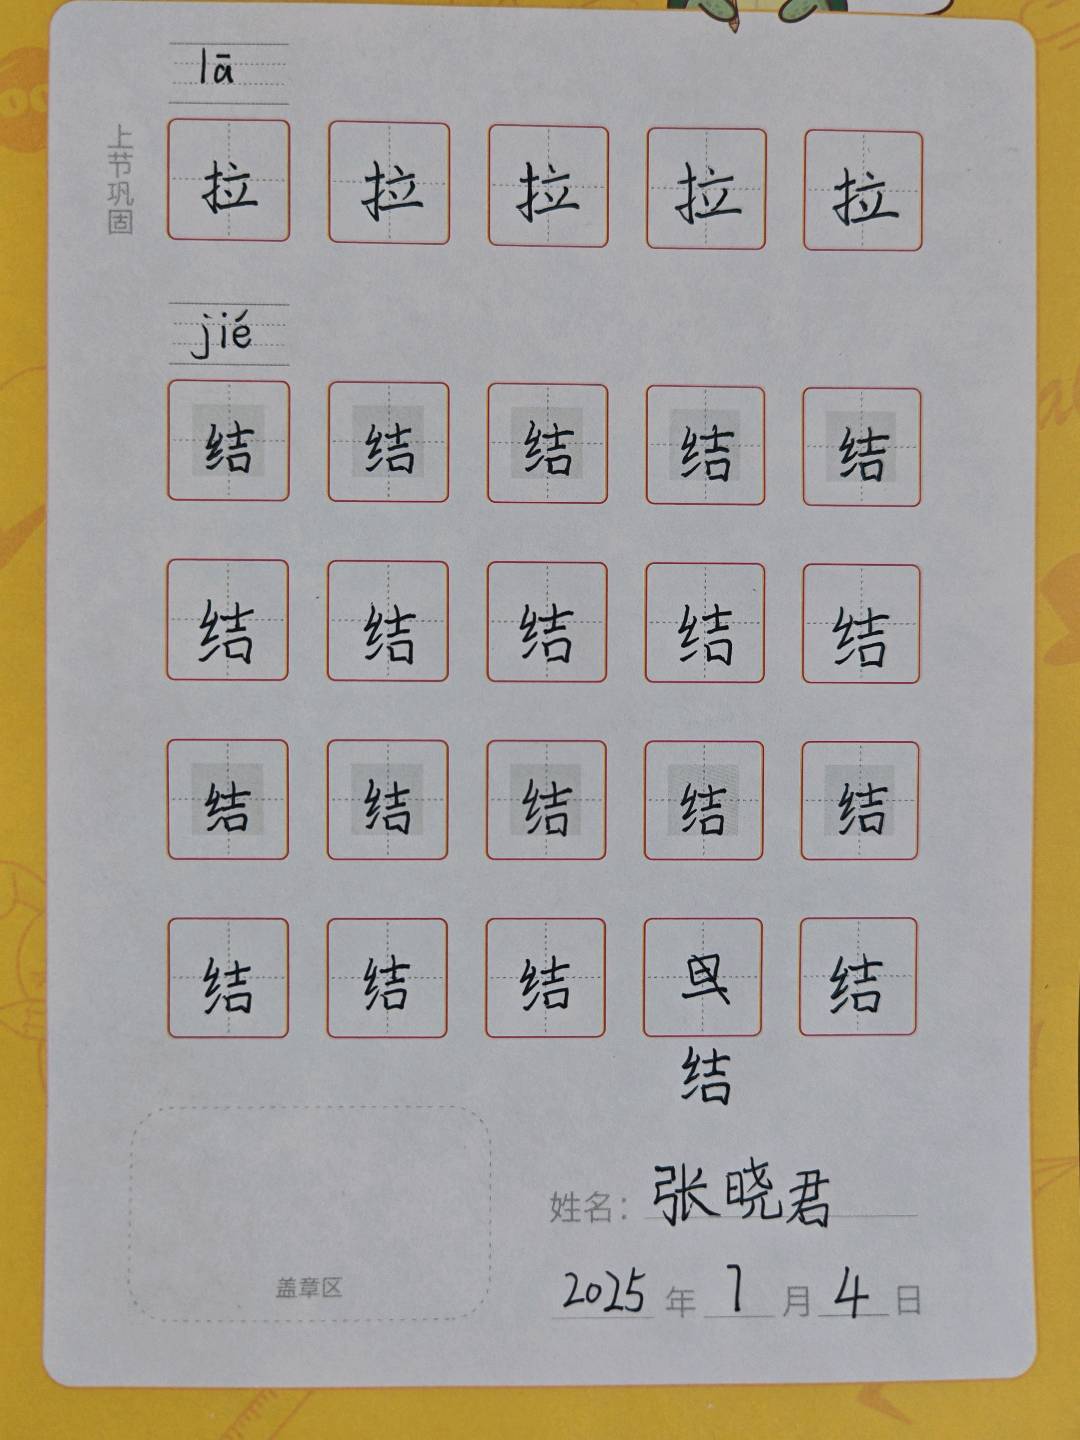 lā
上节巩固
拉 拉 拉 拉 拉
jié
结 结 结 结 结
结 结 结 结 结
结 结 结 结 结
结 结 结 结
结
姓名：张晓君
2025年7月4日
盖章区